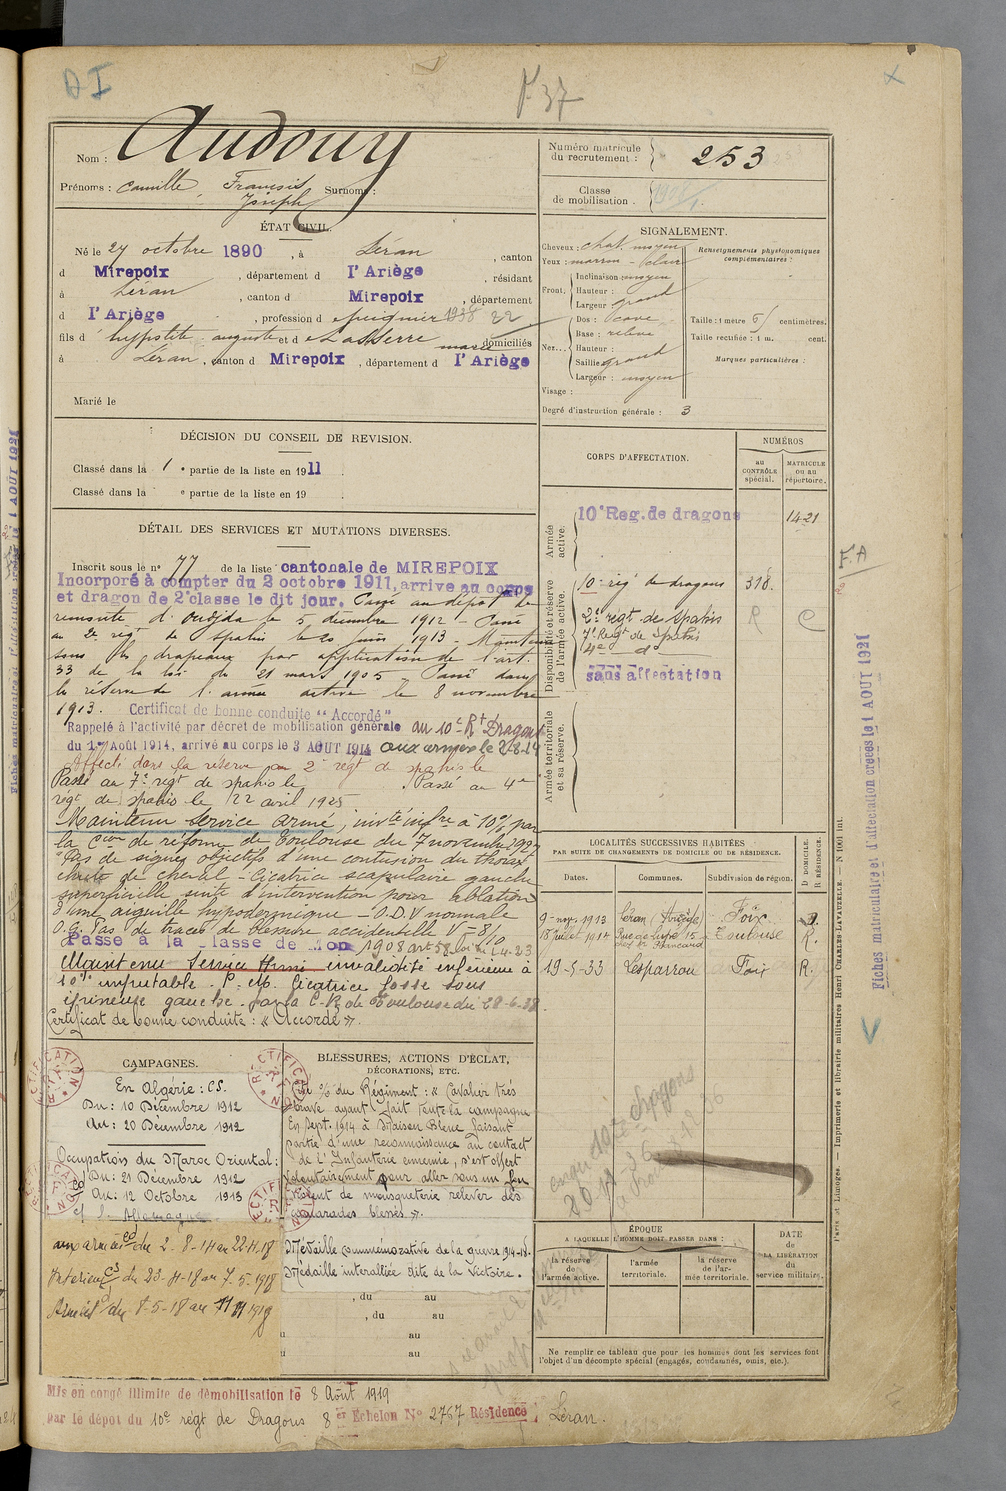 D I
F. 37
Nom : Audouy
Prénoms : Camille, François Joseph Surnoms :
Numéro matricule du recrutement : 253
Classe de mobilisation :
ÉTAT CIVIL.
Né le 27 octobre 1890, à Léran, canton
d Mirepoix, département d l'Ariège, résidant
à Léran, canton d Mirepoix, département
d l'Ariège, profession d
fils d hyppolite auguste et d Lasserre marie domiciliés
à Léran, canton d Mirepoix, département d l'Ariège
Marié le
SIGNALEMENT.
Cheveux : chat. moyen
Yeux : marron - clair
Front. Inclinaison moyen
Hauteur :
Largeur grand
Nez... Dos : cave
Base : relevé
Hauteur :
Saillie grand
Largeur : moyen
Visage :
Degré d'instruction générale : 3
Renseignements physionomiques complémentaires :
Taille : 1 mètre 61 centimètres.
Taille rectifiée : 1 m. cent.
Marques particulières :
DÉCISION DU CONSEIL DE REVISION.
Classé dans la 1e partie de la liste en 1911.
Classé dans la e partie de la liste en 19 .
DÉTAIL DES SERVICES ET MUTATIONS DIVERSES.
Inscrit sous le n° 77 de la liste cantonale de MIREPOIX
Incorporé à compter du 2 octobre 1911, arrive au corps
et dragon de 2e classe le dit jour. Passé au dépôt de
remonte d'Oudjda le 5 décembre 1912 - Passé
au 2e régt de spahis le 20 juin 1913 - Maintenu
sous les drapeaux par application de l'art.
33 de la loi du 21 mars 1905 Passé dans
la réserve de l'armée active le 8 novembre
1913. Certificat de bonne conduite "Accordé"
Rappelé à l'activité par décret de mobilisation générale au 10e Rt Dragons
du 1er Août 1914, arrivé au corps le 3 AOUT 1914 aux armées le 2-8-14
Affecté dans la réserve au 2e régt de spahis le
Passé au 7e régt de spahis le . Passé au 4e
régt de spahis le 22 avril 1925
Maintenu Service armé, invté infre à 10% par
la Cion de réforme de Toulouse du 7 novembre 1927
"Pas de signes objectifs d'une contusion du thorax
chute de cheval - Cicatrice scapulaire gauche
superficielle suite d'intervention pour ablation
d'une aiguille hypodermique - O.D.V normale
O.G. Pas de traces de blessure accidentelle V = 8/10
Passé à la classe de Mon 1908 art 58 loi du 1-4-23
Maintenu Service Armé invalidité inférieure à
10% imputable. P. Mp. Cicatrice fosse sous
épineuse gauche. par la C.R. de Toulouse du 28-6-38.
Certificat de bonne conduite : « Accordé ».
CORPS D'AFFECTATION.
NUMÉROS
au CONTRÔLE spécial.
MATRICULE ou au répertoire.
Armée active.
10e Reg. de dragons 1421
Disponibilité et réserve de l'armée active.
10e rég de dragons 318.
2e régt de Spahis R C
7e Régt de Spahis
4e d°
sans affectation
Armée territoriale et sa réserve.
LOCALITÉS SUCCESSIVES HABITÉES
PAR SUITE DE CHANGEMENTS DE DOMICILE OU DE RÉSIDENCE.
Dates. Communes. Subdivision de région. D DOMICILE. R RÉSIDENCE.
9-nov 1913 Léran (Ariège) Foix D.
18 juillet 1914 Toulouse R.
19-5-33 Lesparrou Foix R.
CAMPAGNES.
En Algérie : CS.
Du : 10 Décembre 1912
Au : 20 Décembre 1912
Occupation du Maroc Oriental :
Du : 21 Décembre 1912
Au : 12 Octobre 1913
c/ l'Allemagne
aux armées du 2-8-14 au 22-11-18
Intérieur CS du 23-11-18 au 7-5-1918
Armées du 8-5-18 au
BLESSURES, ACTIONS D'ÉCLAT,
DÉCORATIONS, ETC.
Cité o/o du Régiment : « Cavalier très
brave ayant fait toute la campagne
En Sept. 1914 à Maison Bleue faisant
partie d'une reconnaissance au contact
de l'Infanterie ennemie, s'est offert
volontairement pour aller sous un feu
violent de mousqueterie relever des
camarades blessés ».
Médaille commémorative de la guerre 1914-18.
Médaille interalliée dite de la Victoire.
, du au
, du au
au
au
RECTIFICATION
ÉPOQUE
A LAQUELLE L'HOMME DOIT PASSER DANS :
la réserve de l'armée active.
l'armée territoriale.
la réserve de l'armée territoriale.
DATE de LA LIBÉRATION du service militaire.
Ne remplir ce tableau que pour les hommes dont les services font
l'objet d'un décompte spécial (engagés, condamnés, omis, etc.).
Mis en congé illimité de démobilisation le 8 Août 1919
par le dépôt du 10e régt de Dragons 8er Échelon N° 2767 Résidence Léran.
F. A
Fiches matriculaire et d'affectation créées le 1 AOUT 1921
Paris et Limoges. — Imprimerie et librairie militaires Henri CHARLES-LAVAUZELLE. — N° 1001 int.